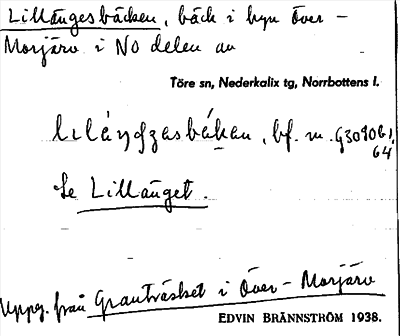 Lillängesbäcken, bäck i byn Över-
Morjärv i NO delen av
Töre sn, Nederkalix tg, Norrbottens l.
bf. m.
64.
Se Lillänget.
Uppg. från Granträsket i Över-Morjärv
EDVIN BRÄNNSTRÖM 1938.